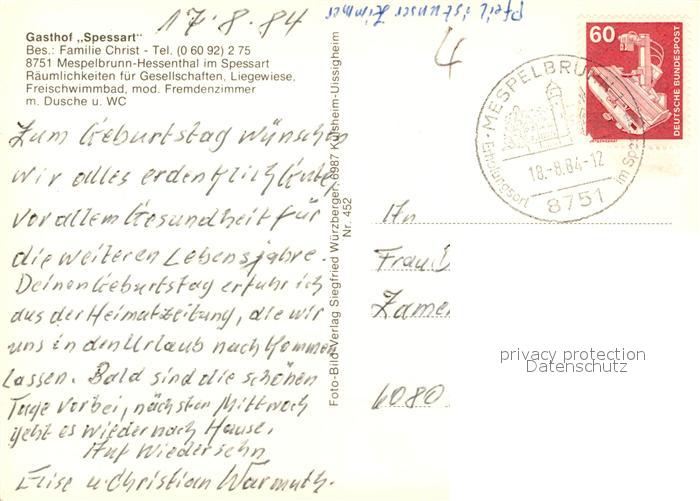 17.8.84
Pfeil ist unser Zimmer
Gasthof „Spessart"
Bes.: Familie Christ - Tel. (0 60 92) 2 75
8751 Mespelbrunn-Hessenthal im Spessart
Räumlichkeiten für Gesellschaften, Liegewiese,
Freischwimmbad, mod. Fremdenzimmer
m. Dusche u. WC
Zum Geburtstag wünschen
wir alles erdenklich Gute,
vor allem Gesundheit für
die weiteren Lebensjahre.
Deinen Geburtstag erfuhr ich
aus der Heimatzeitung, die wir
uns in den Urlaub nachkommen
lassen. Bald sind die schönen
Tage vorbei, nächsten Mittwoch
geht es wieder nach Hause.
Auf Wiedersehn
Elise u. Christian Warmuth.
Foto-Bild-Verlag Siegfried Würzberger, 6987 Külsheim-Uissigheim
Nr. 452
60
DEUTSCHE BUNDESPOST
MESPELBRUNN
18.-8.84-12
Erholungsort im Spes
8751
An
Frau
Zamen
6080
privacy protection
Datenschutz